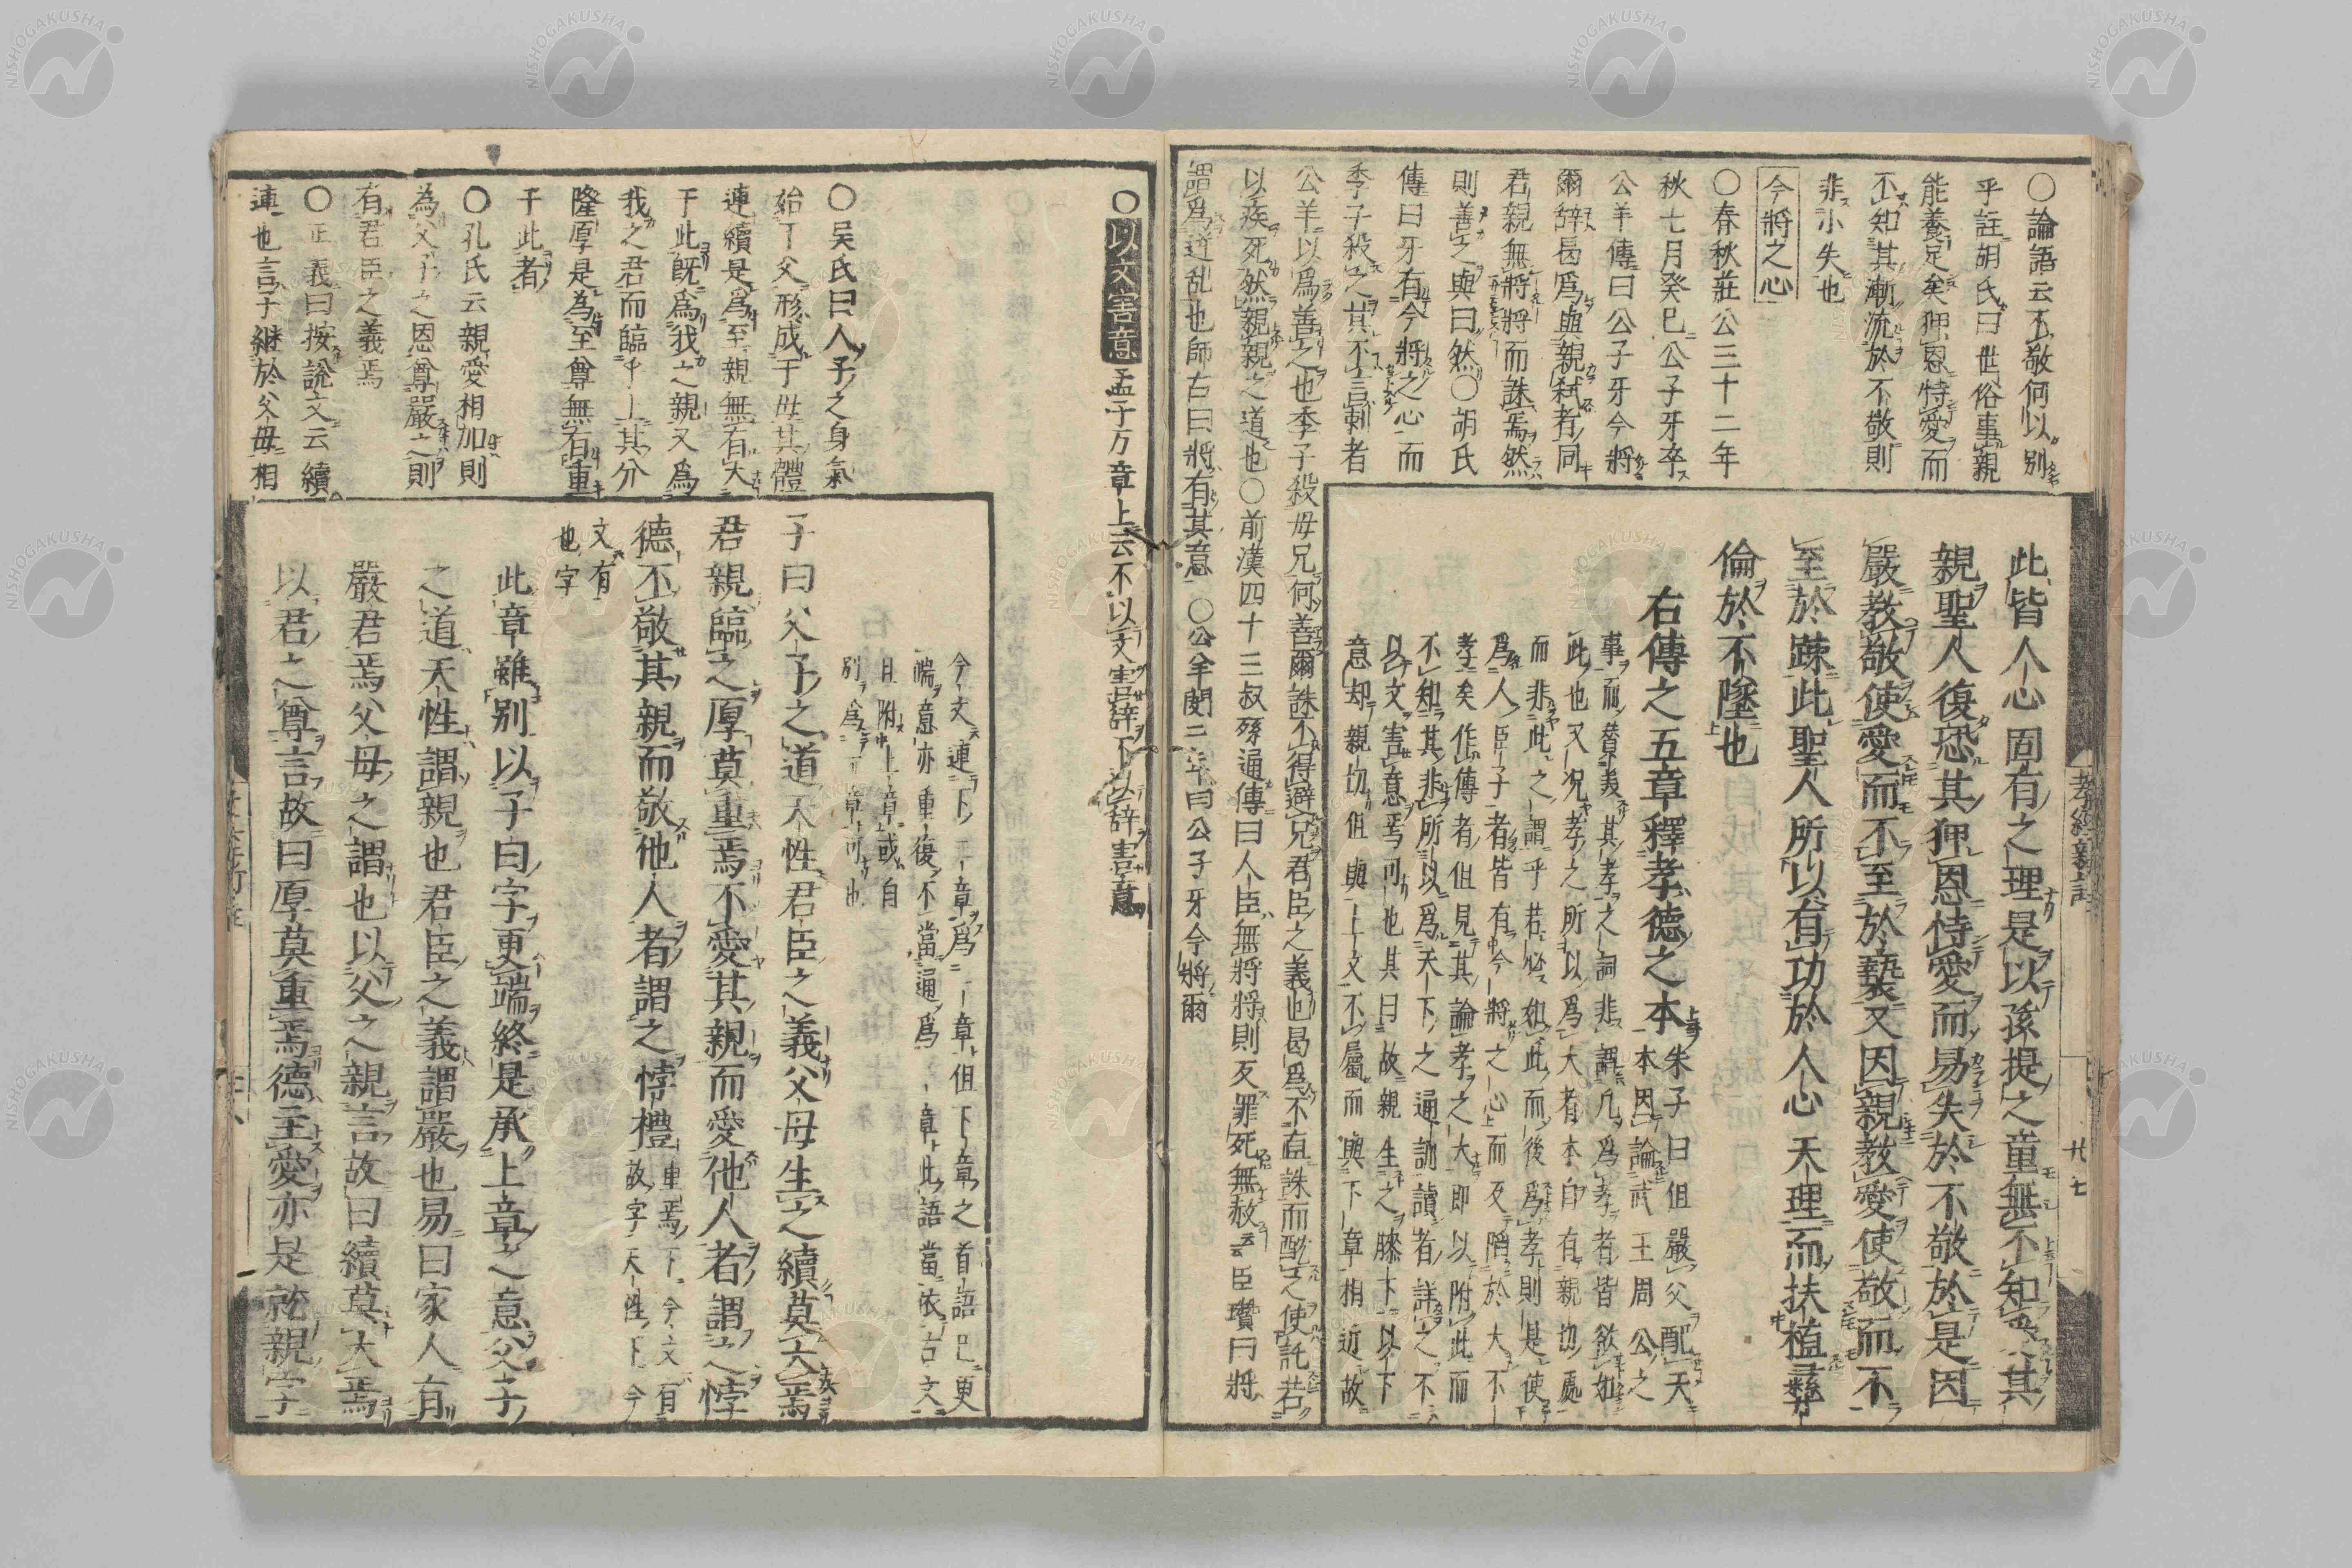 〇論語云不敬何以別
乎註胡氏曰世俗事親
能養足矣狎恩恃愛而
不知其漸流於不敬則
非小失也
今將之心
〇春秋莊公三十二年
秋七月癸巳公子牙卒
公羊傳曰公子牙今將
爾辭曷爲與親弑者同
君親無將將而誅焉然
則善之與曰然〇胡氏
傳曰牙有今將之心而
季子殺之其不言刺者
公羊以爲善之也季子殺母兄何善爾誅不得避兄君臣之義也曷爲不直誅而酖之使託若
以疾死然親親之道也〇前漢四十三叔孫通傳曰人臣無將將則反罪死無赦云云臣瓚曰將
謂爲逆乱也師古曰將有其意〇公羊閔二年曰公子牙今將爾
此皆人心固有之理是以孩提之童無不知愛其
親聖人復恐其狎恩恃愛而易失於不敬於是因
嚴教敬使愛而不至於褻又因親教愛使敬而不
至於踈此聖人所以有功於人心天理而扶植彝
倫於不墜也
右傳之五章釋孝德之本
朱子曰但嚴父配天
一本因論武王周公之
事而賛美其孝之詞非謂凡爲孝者皆欲如
此也又况孝之所以爲大者本自有親切處
而非此之謂乎若必如此而後爲孝則是使
爲人臣子者皆有今將之心而反陷於大不
孝矣作傳者但見其論孝之大即以附此而
不知其非所以爲天下之通訓讀者詳之不
以文害意焉可也其曰故親生之膝下以下
意却親切但與上文不屬而與下章相近故
孝經
廿七
〇以文害意 孟子万章上云不以文害辞不以辞害意
今文連下二章爲一章但下章之首語已更
端意亦重復不當通爲一章此語當依古文
且附上章或自
別爲一章可也
〇吴氏曰人子之身氣
始于父形成于母其體
連續是爲至親無有大
于此既爲我之親又爲
我之君而臨乎上其分
隆厚是為至尊無有重
于此者
〇孔氏云親愛相加則
為父子之恩尊嚴之則
有君臣之義焉
〇正義曰按說文云續
連也言子継於父母相
子曰父子之道天性君臣之義父母生之續莫大焉
君親臨之厚莫重焉不愛其親而愛他人者謂之悖
德不敬其親而敬他人者謂之悖禮
故字天性下今
文有
也字
此章雖別以子曰字更端終是承上章之意父子
之道天性謂親也君臣之義謂嚴也易曰家人有
嚴君焉父母之謂也以父之親言故曰續莫大焉
以君之尊言故曰厚莫重焉德主愛亦是就親字